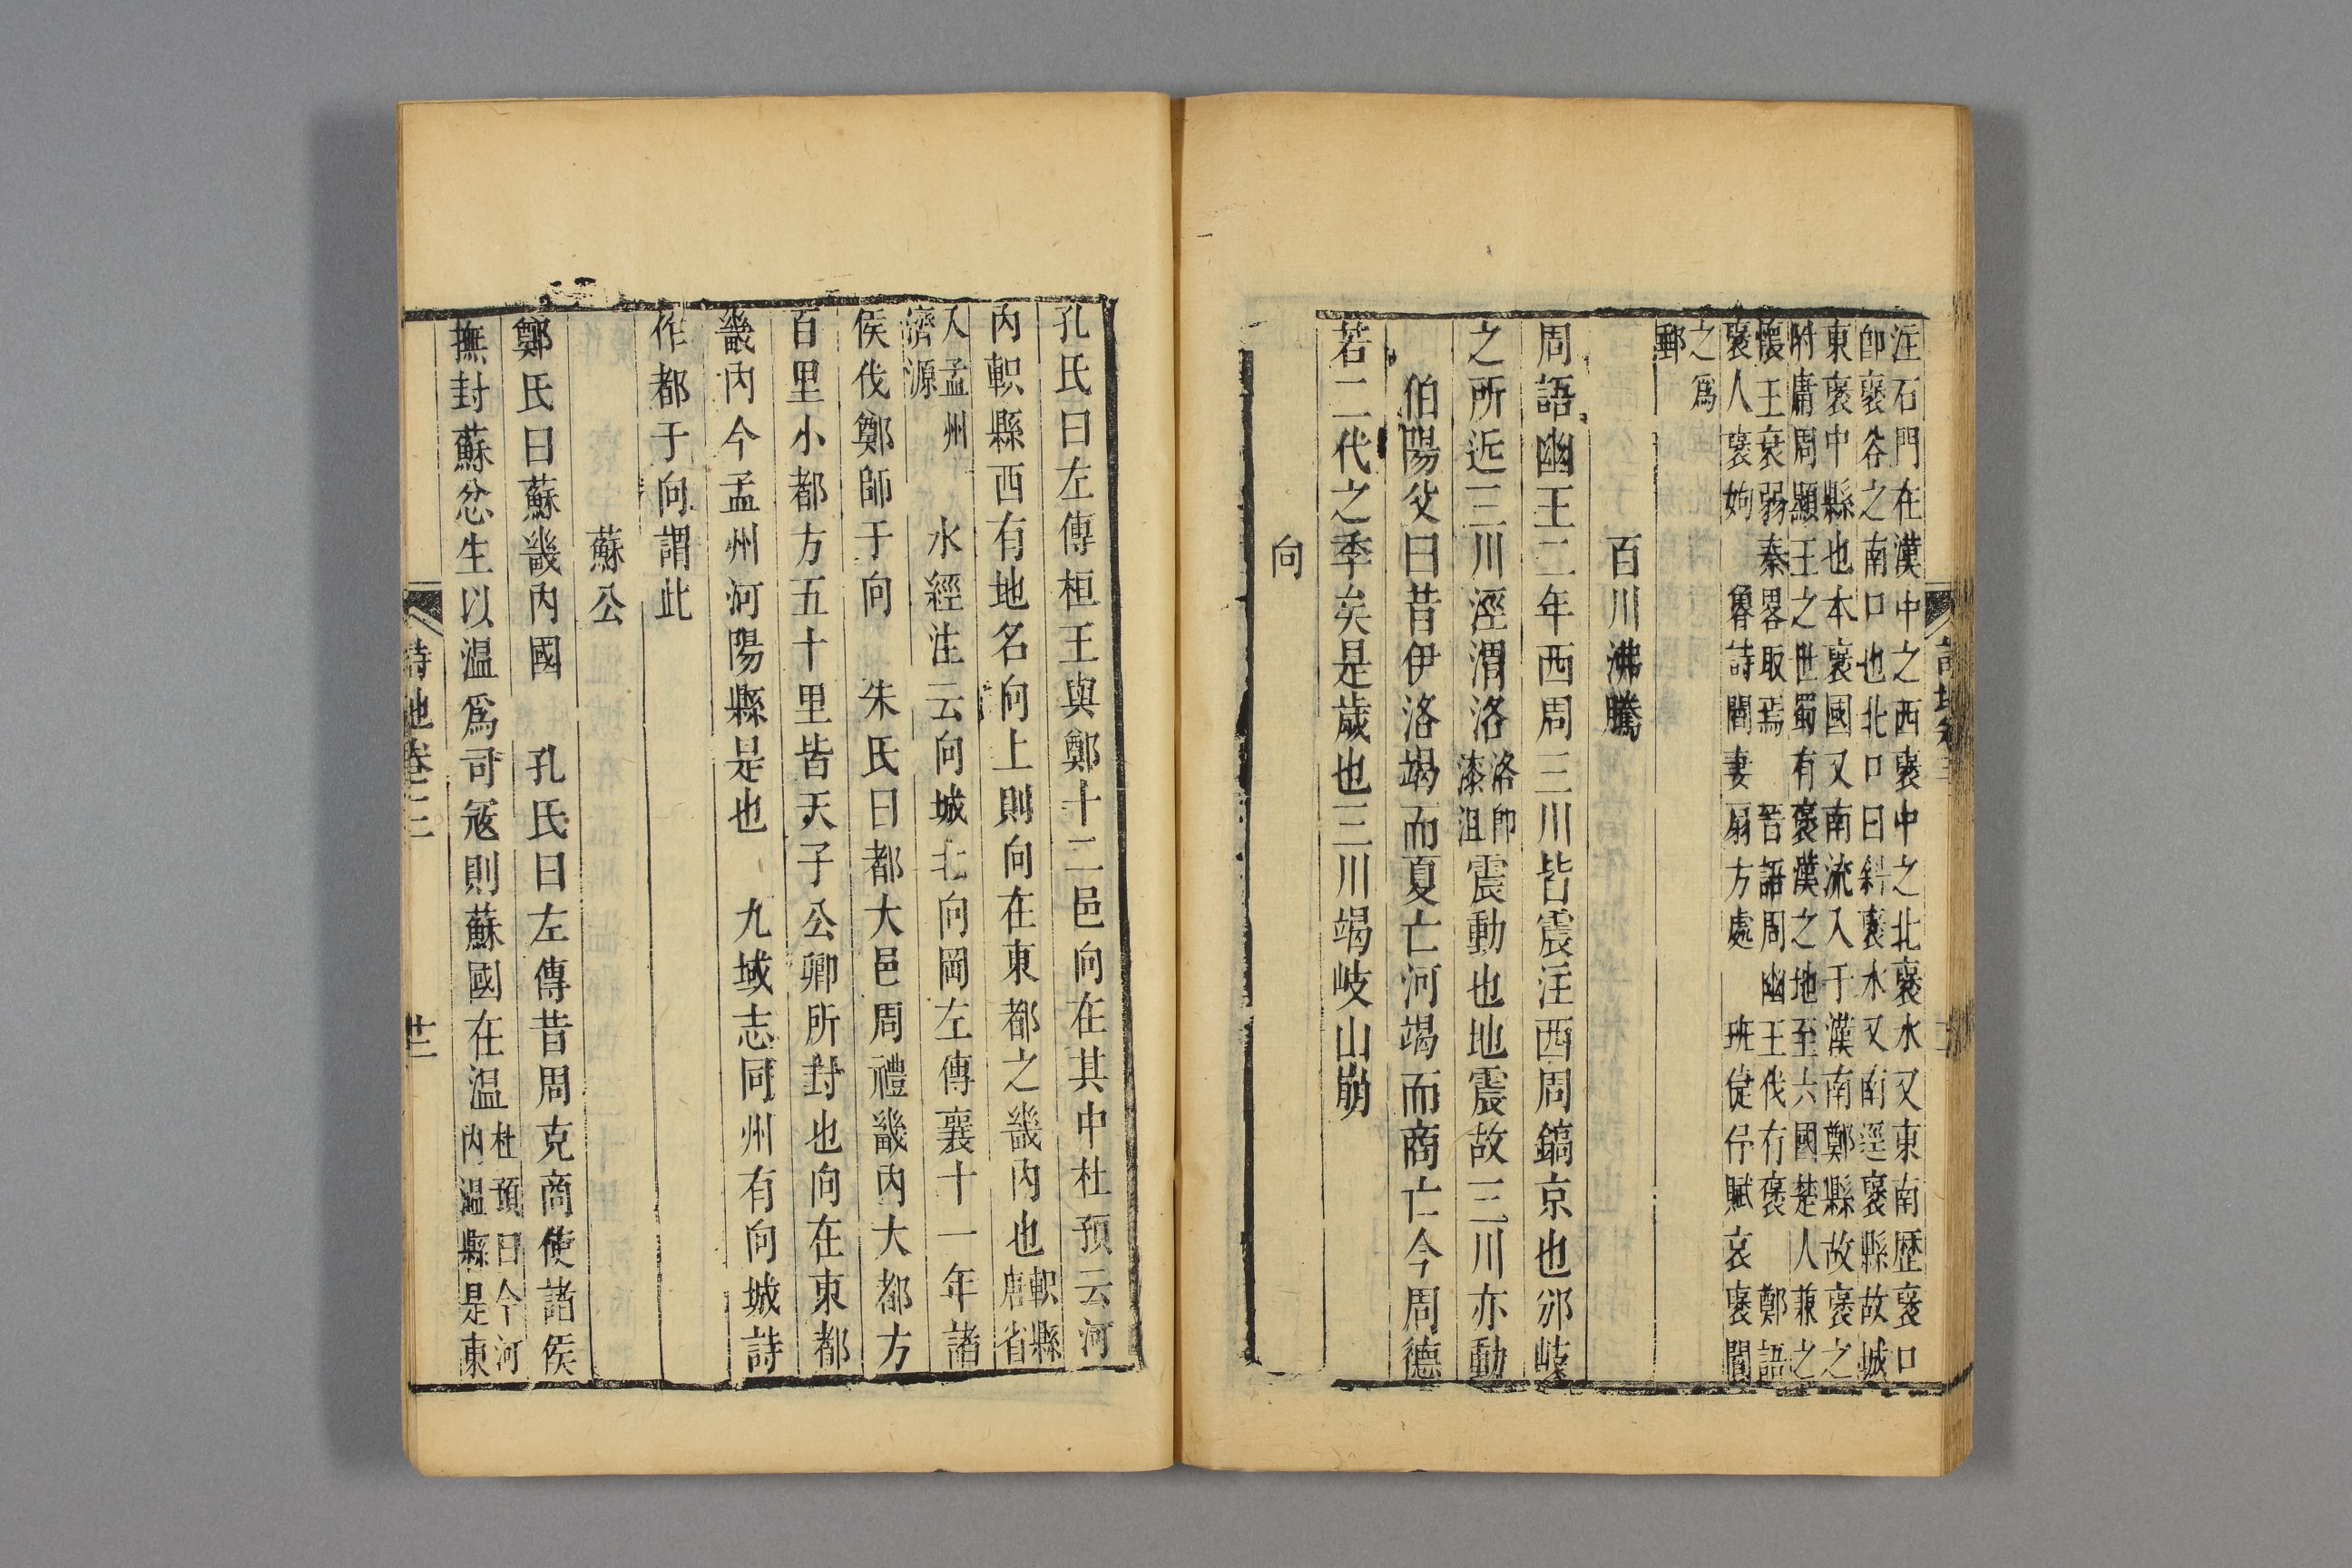 注石門在漢中之西襃中之北襃水又東南歷襃口
卽襃谷之南口也北口曰斜襃水又南逕襃縣故城
東襃中縣也本襃國又南流入于漢南鄭縣故襃之
附庸周顯王之世蜀有襃漢之地至六國楚人兼之
懷王衰弱秦畧取焉　晉語周幽王伐有襃　鄭語
襃人襃姁　魯詩閻妻扇方處　班倢伃賦哀襃閻
之爲
郵
百川沸騰
周語幽王二年西周三川皆震注西周鎬京也邠岐
之所近三川涇渭洛洛卽漆沮震動也地震故三川亦動
伯陽父曰昔伊洛竭而夏亡河竭而商亡今周德
若二代之季矣是歲也三川竭岐山崩
向
孔氏曰左傳桓王與鄭十二邑向在其中杜預云河
內軹縣西有地名向上則向在東都之畿內也軹縣唐省
入孟州濟源　水經注云向城北向岡左傳襄十一年諸
侯伐鄭師于向　朱氏曰都大邑周禮畿內大都方
百里小都方五十里皆天子公卿所封也向在東都
畿內今孟州河陽縣是也　九域志同州有向城詩
作都于向謂此
蘇公
鄭氏曰蘇畿內國　孔氏曰左傳昔周克商使諸侯
撫封蘇忿生以温爲司寇則蘇國在温杜預曰今河內温縣是東
詩地卷三
廿二